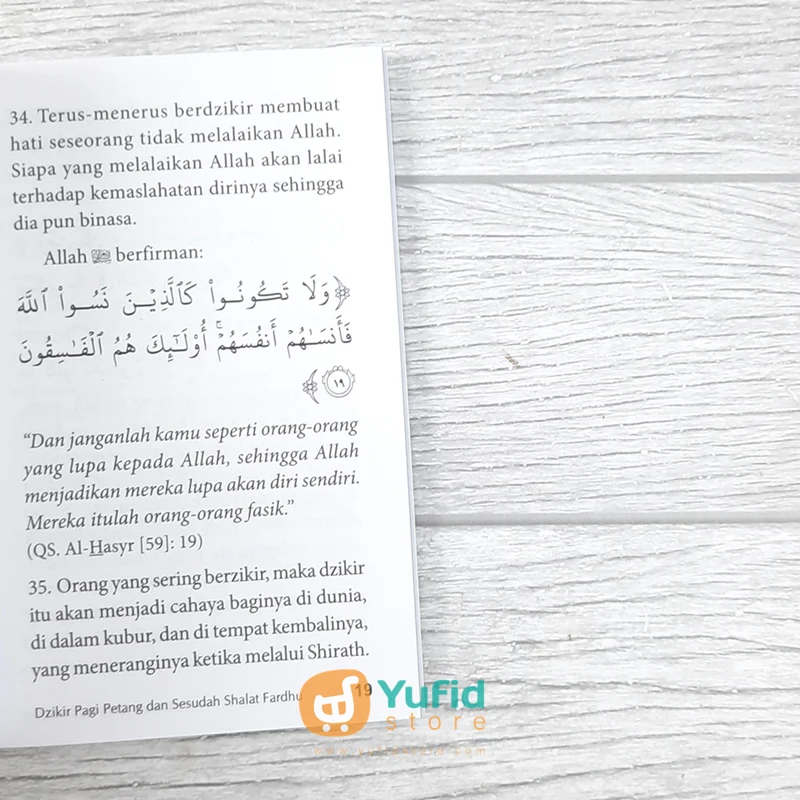 34. Terus-menerus berdzikir membuat
hati seseorang tidak melalaikan Allah.
Siapa yang melalaikan Allah akan lalai
terhadap kemaslahatan dirinya sehingga
dia pun binasa.
Allah ﷻ berfirman:
﴿وَلَا تَكُونُوا۟ كَٱلَّذِينَ نَسُوا۟ ٱللَّهَ
فَأَنسَىٰهُمْ أَنفُسَهُمْ ۚ أُو۟لَـٰٓئِكَ هُمُ ٱلْفَـٰسِقُونَ
١٩﴾
“Dan janganlah kamu seperti orang-orang
yang lupa kepada Allah, sehingga Allah
menjadikan mereka lupa akan diri sendiri.
Mereka itulah orang-orang fasik.”
(QS. Al-Hasyr [59]: 19)
35. Orang yang sering berzikir, maka dzikir
itu akan menjadi cahaya baginya di dunia,
di dalam kubur, dan di tempat kembalinya,
yang meneranginya ketika melalui Shirath.
Dzikir Pagi Petang dan Sesudah Shalat Fardhu 19
Yufid
store